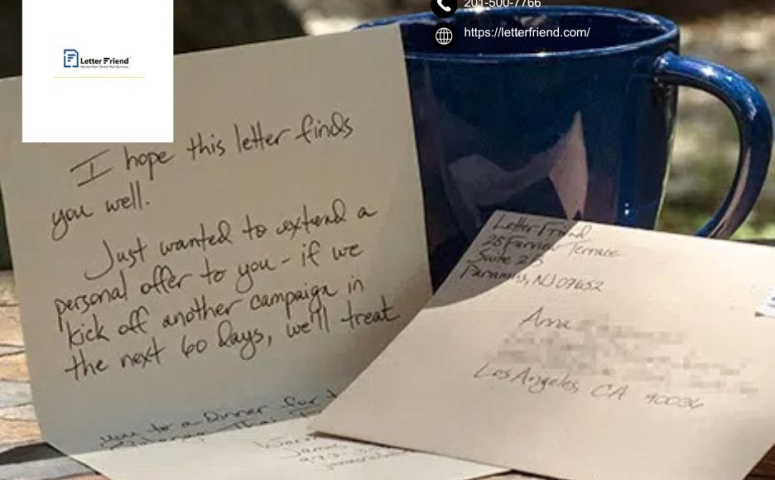 201-500-7766
https://letterfriend.com/
Letter Friend
I hope this letter finds
you well.
Just wanted to extend a
personal offer to you - if we
kick off another campaign in
the next 60 days, we'll treat
you to a Dinner for
Letter Friend
28 Fairview Terrace
Suite 2B
Paramus, NJ 07652
Anna
Los Angeles, CA 90036